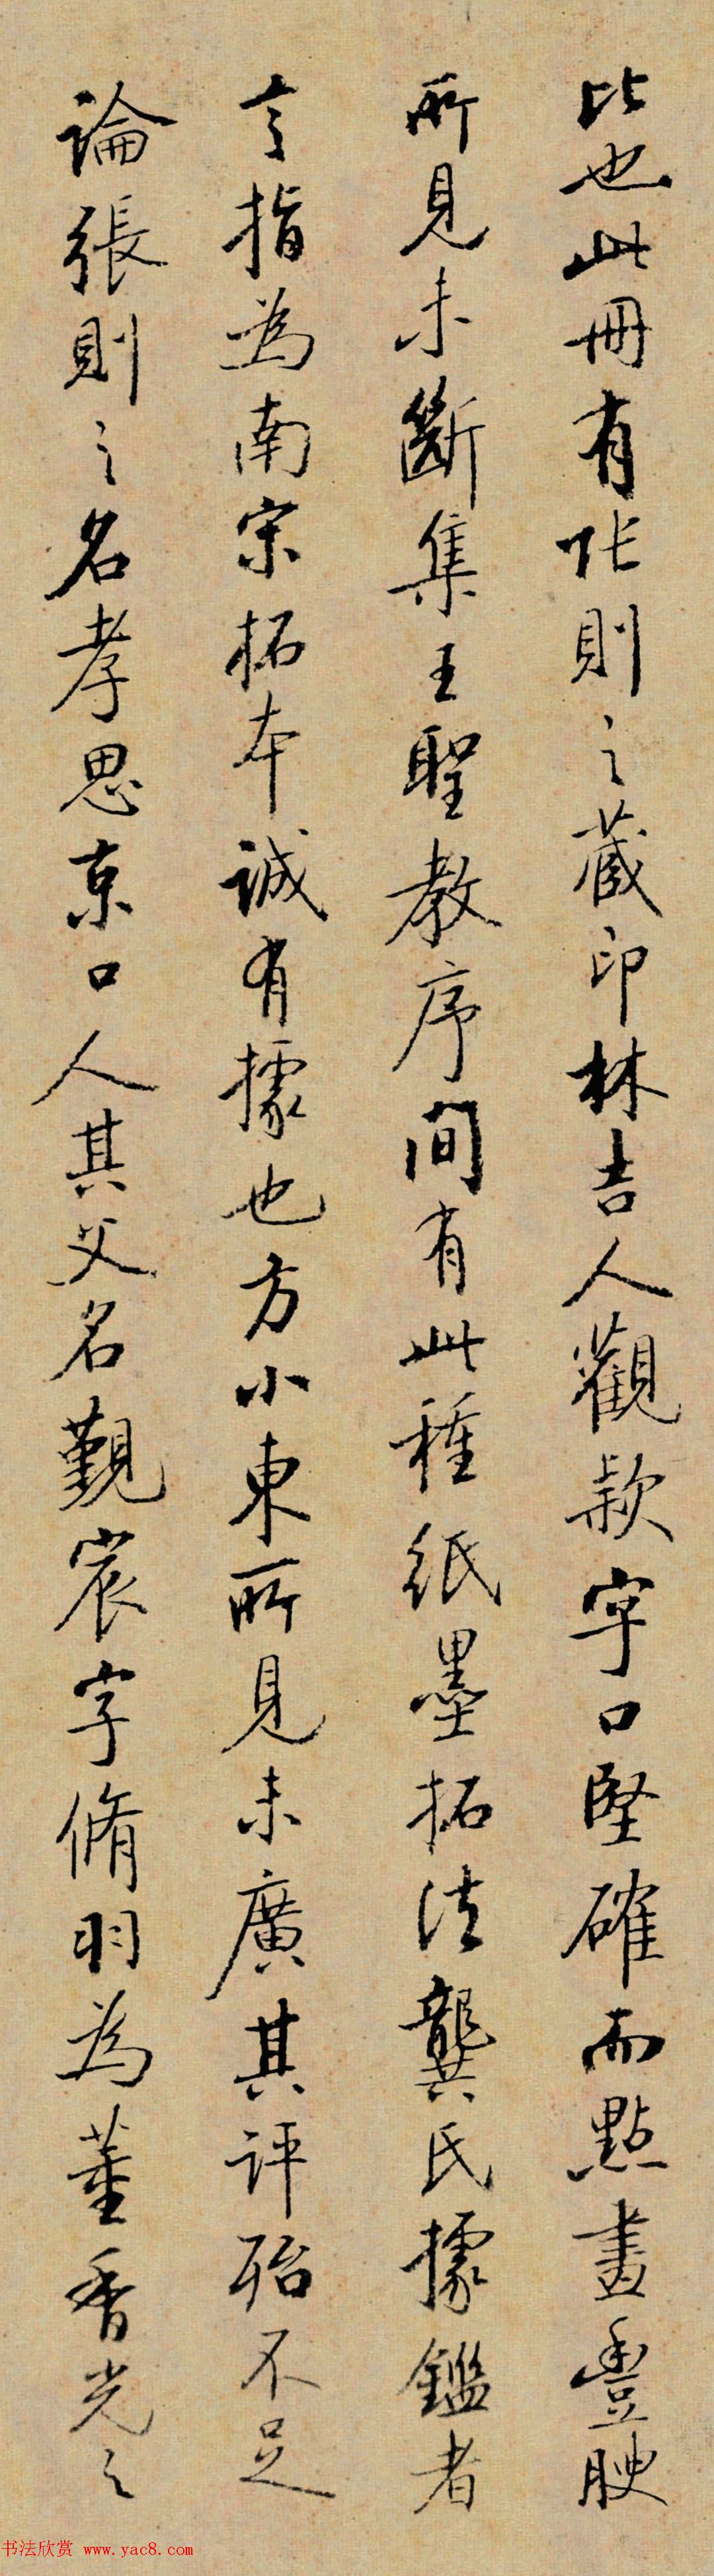 比也此冊有張則之藏印林吉人觀款字口堅確而點畫豐腴
所見未斷集王聖教序間有此種紙墨拓法龔氏據鑑者
言指為南宋拓本誠有據也方小東所見未廣其評殆不足
論張則之名孝思京口人其父名覲宸字脩羽為董香光之
书法欣赏 www.yac8.com